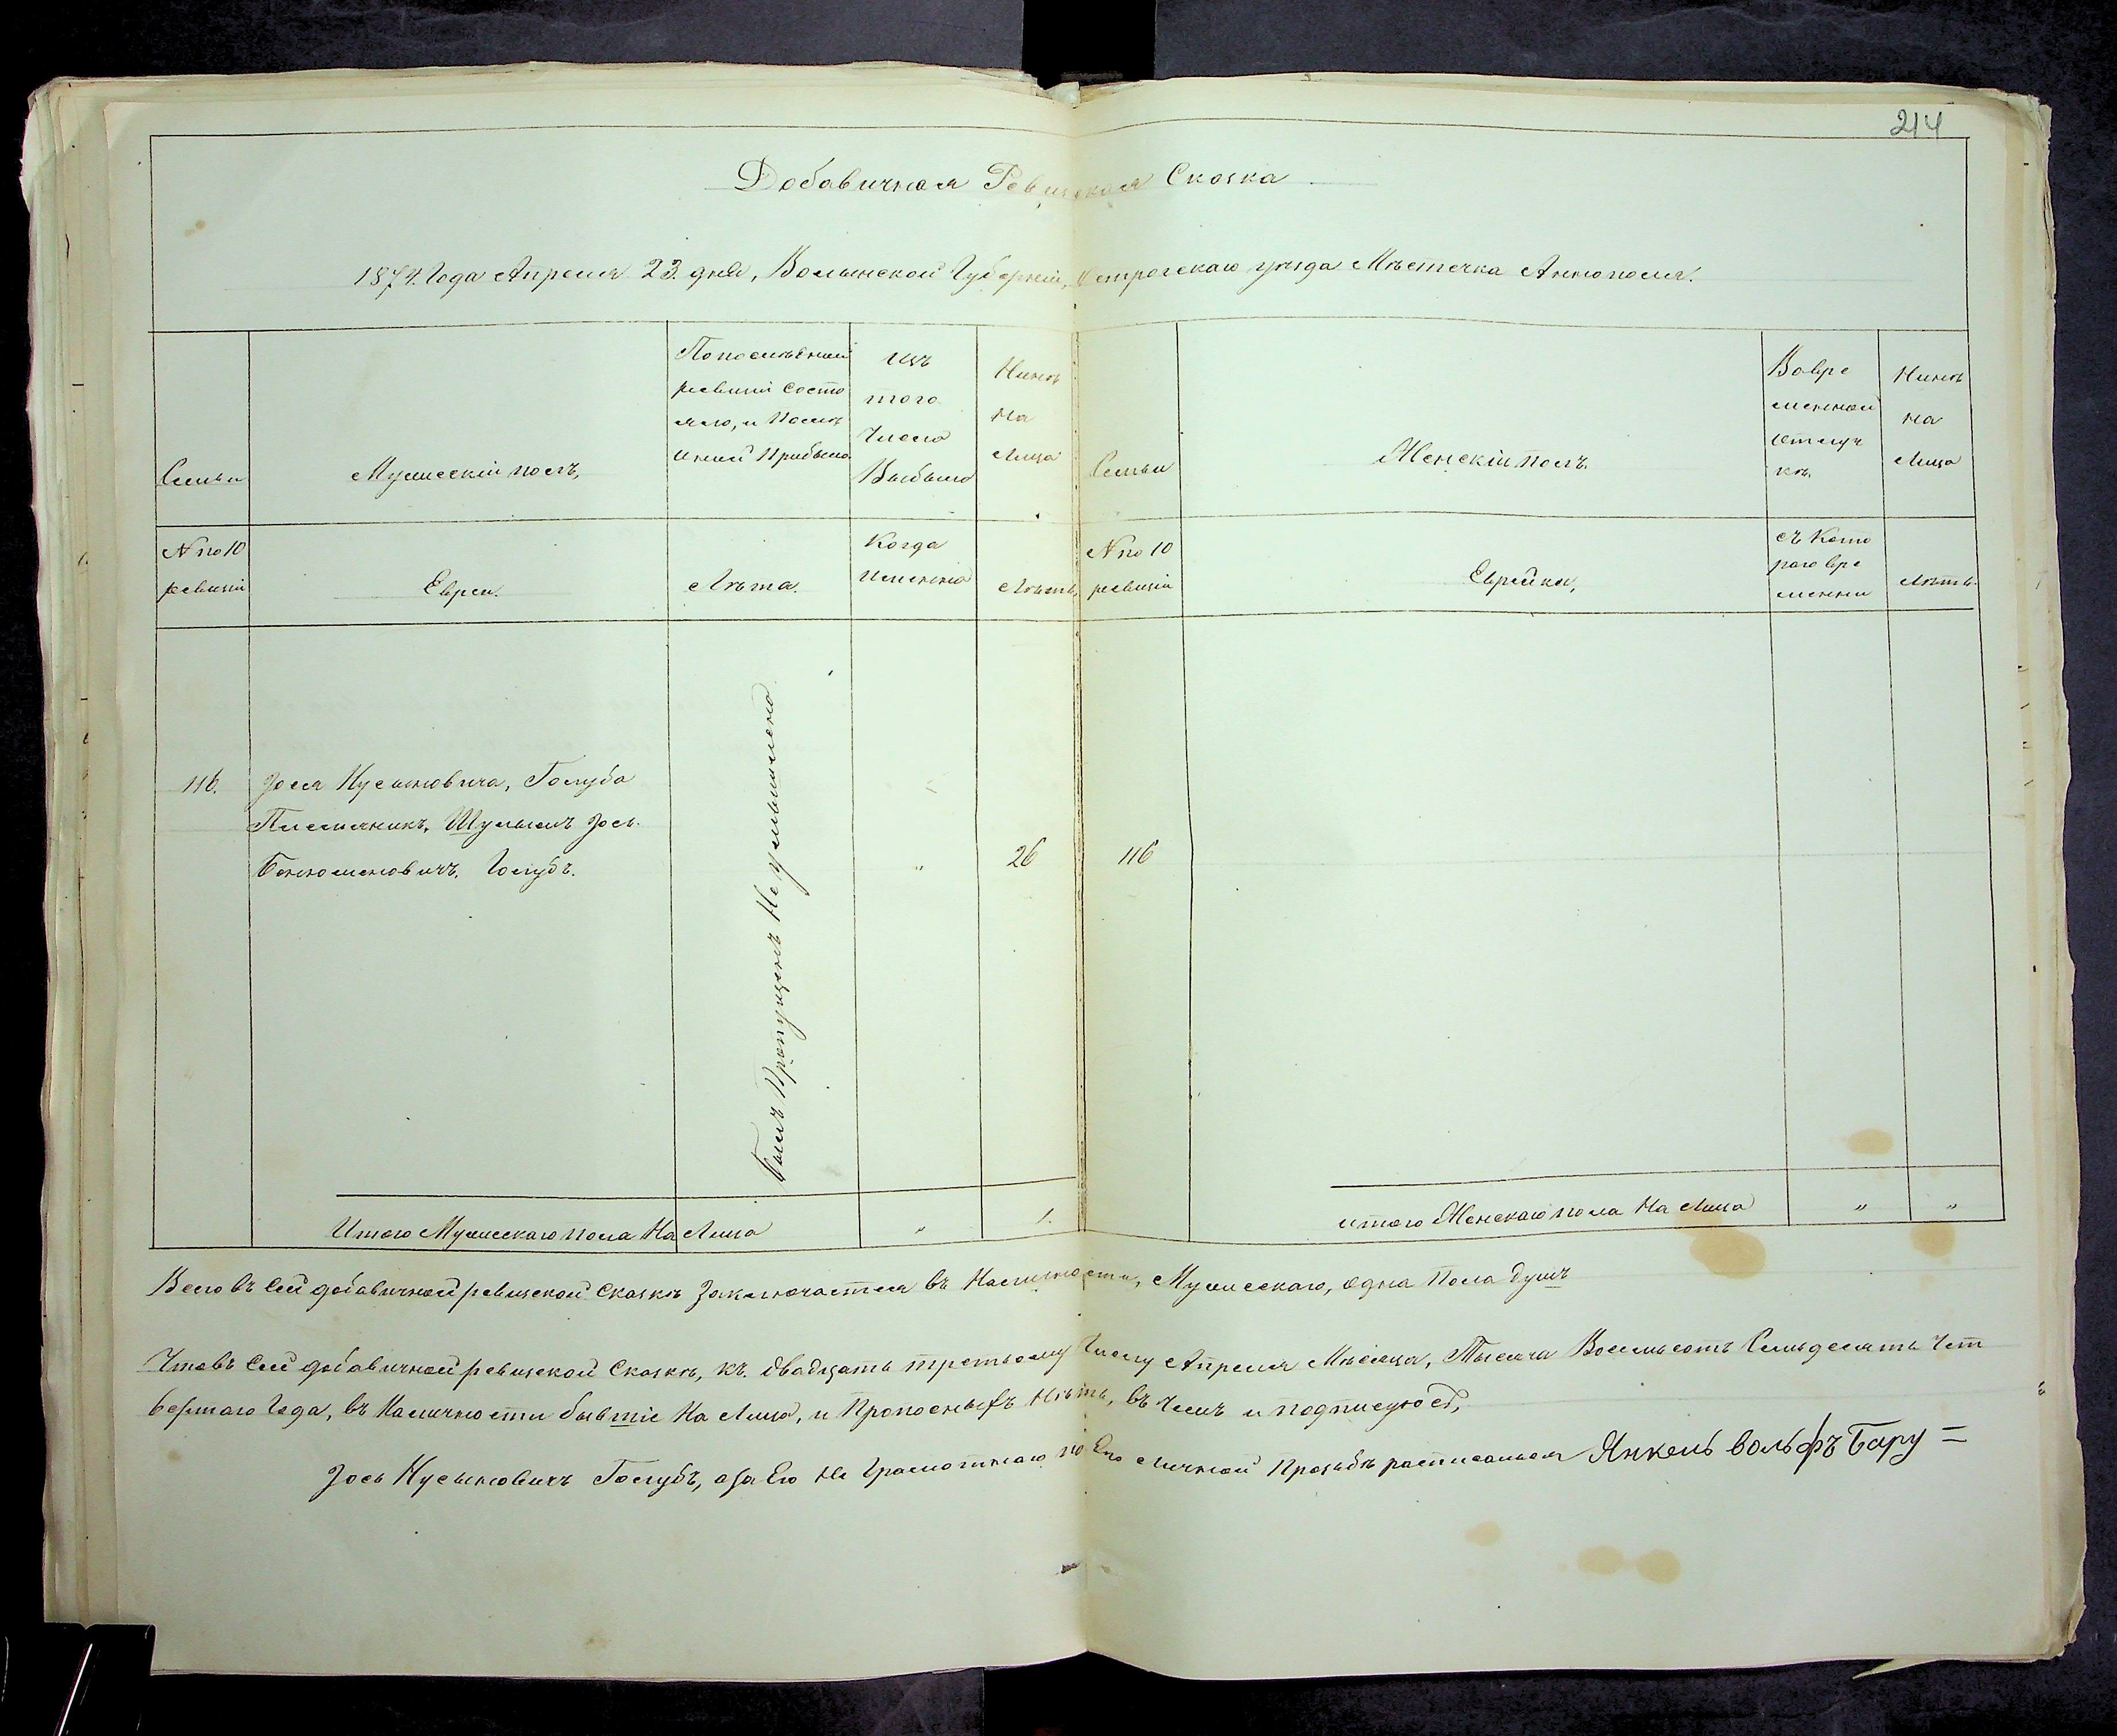 214
Добавичная Ревизская Сказка
1874. Года Апреля 23. дня, Волынской Губерніи, Острогскаго уѣзда Мѣстечка Аннополя.
Семьи
Мужескій полъ,
Попослѣдней
ревизіи Состо
яло, и Послѣ
оной Прибыло
Изъ
того
Числа
Выбыло
Нынѣ
На
Лицо
Семьи
Женскій полъ.
Вовре
менной
Отлуч
кѣ.
Нынѣ
На
Лицо
№ по 10
ревизіи
Евреи.
Лѣта.
Когда
Именно
Лѣтъ,
№ по 10
ревизіи
Еврейки,
съ Кото
раго вре
менни
Лѣтъ.
116.
Іося Нусыновича, Голуба
Племянникъ, Шулимъ Іось.
Бенюменовичъ. Голубъ.
Былъ Пропущенъ Неумышленно
"
26
116
Итого Мужескаго пола На Лицо
"
1.
итого Женскаго пола На Лицо
"
"
Всего въ Сей добавичной ревизской Сказкѣ Заключается въ Наличности, Мужескаго, одна Пола душъ
Чтовъ Сей добавичной ревизской Сказкѣ, къ. двадцать третьому Числу Апреля Мѣсяца, Тысяча Восемьсотъ Семьдесятъ Чет
вертаго Года, въ Наличности бывшіе На Лицо, и Прописныхъ Нѣтъ, въ Чемъ и подписуюсь,
Іось Нусыновичъ Голубъ, а за Его Не Грамотнаго по Его личной Прозьбѣ расписался Янкель вольфъ Бару =